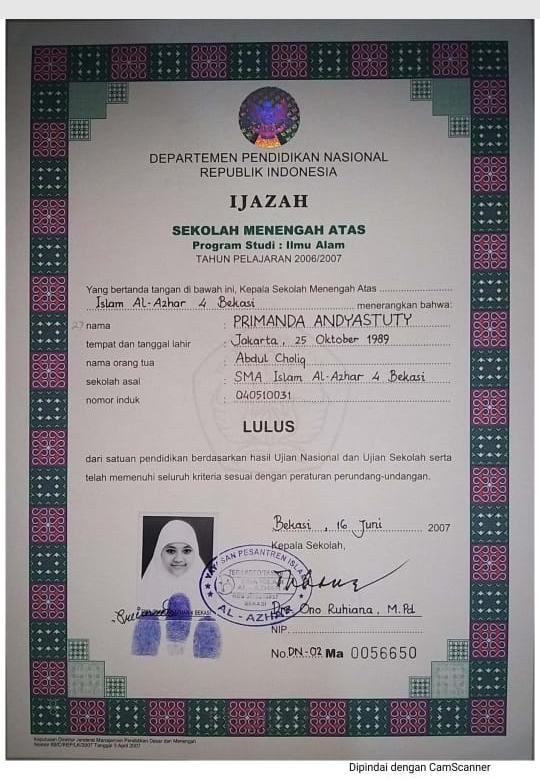 DEPARTEMEN PENDIDIKAN NASIONAL
REPUBLIK INDONESIA
IJAZAH
SEKOLAH MENENGAH ATAS
Program Studi : Ilmu Alam
TAHUN PELAJARAN 2006/2007
Yang bertanda tangan di bawah ini, Kepala Sekolah Menengah Atas
Islam Al-Azhar 4 Bekasi menerangkan bahwa:
27 nama : PRIMANDA ANDYASTUTY
tempat dan tanggal lahir : Jakarta, 25 Oktober 1989
nama orang tua : Abdul Choliq
sekolah asal : SMA Islam Al-Azhar 4 Bekasi
nomor induk : 040510031
LULUS
dari satuan pendidikan berdasarkan hasil Ujian Nasional dan Ujian Sekolah serta
telah memenuhi seluruh kriteria sesuai dengan peraturan perundang-undangan.
Bekasi, 16 Juni 2007
Kepala Sekolah,
PESANTREN ISLAM
BEKASI
AL-AZHAR
Drs. Ono Ruhiana, M.Pd
NIP.
No. DN-02 Ma 0056650
Keputusan Direktur Jenderal Manajemen Pendidikan Dasar dan Menengah
Tanggal 3 April 2007
Dipindai dengan CamScanner